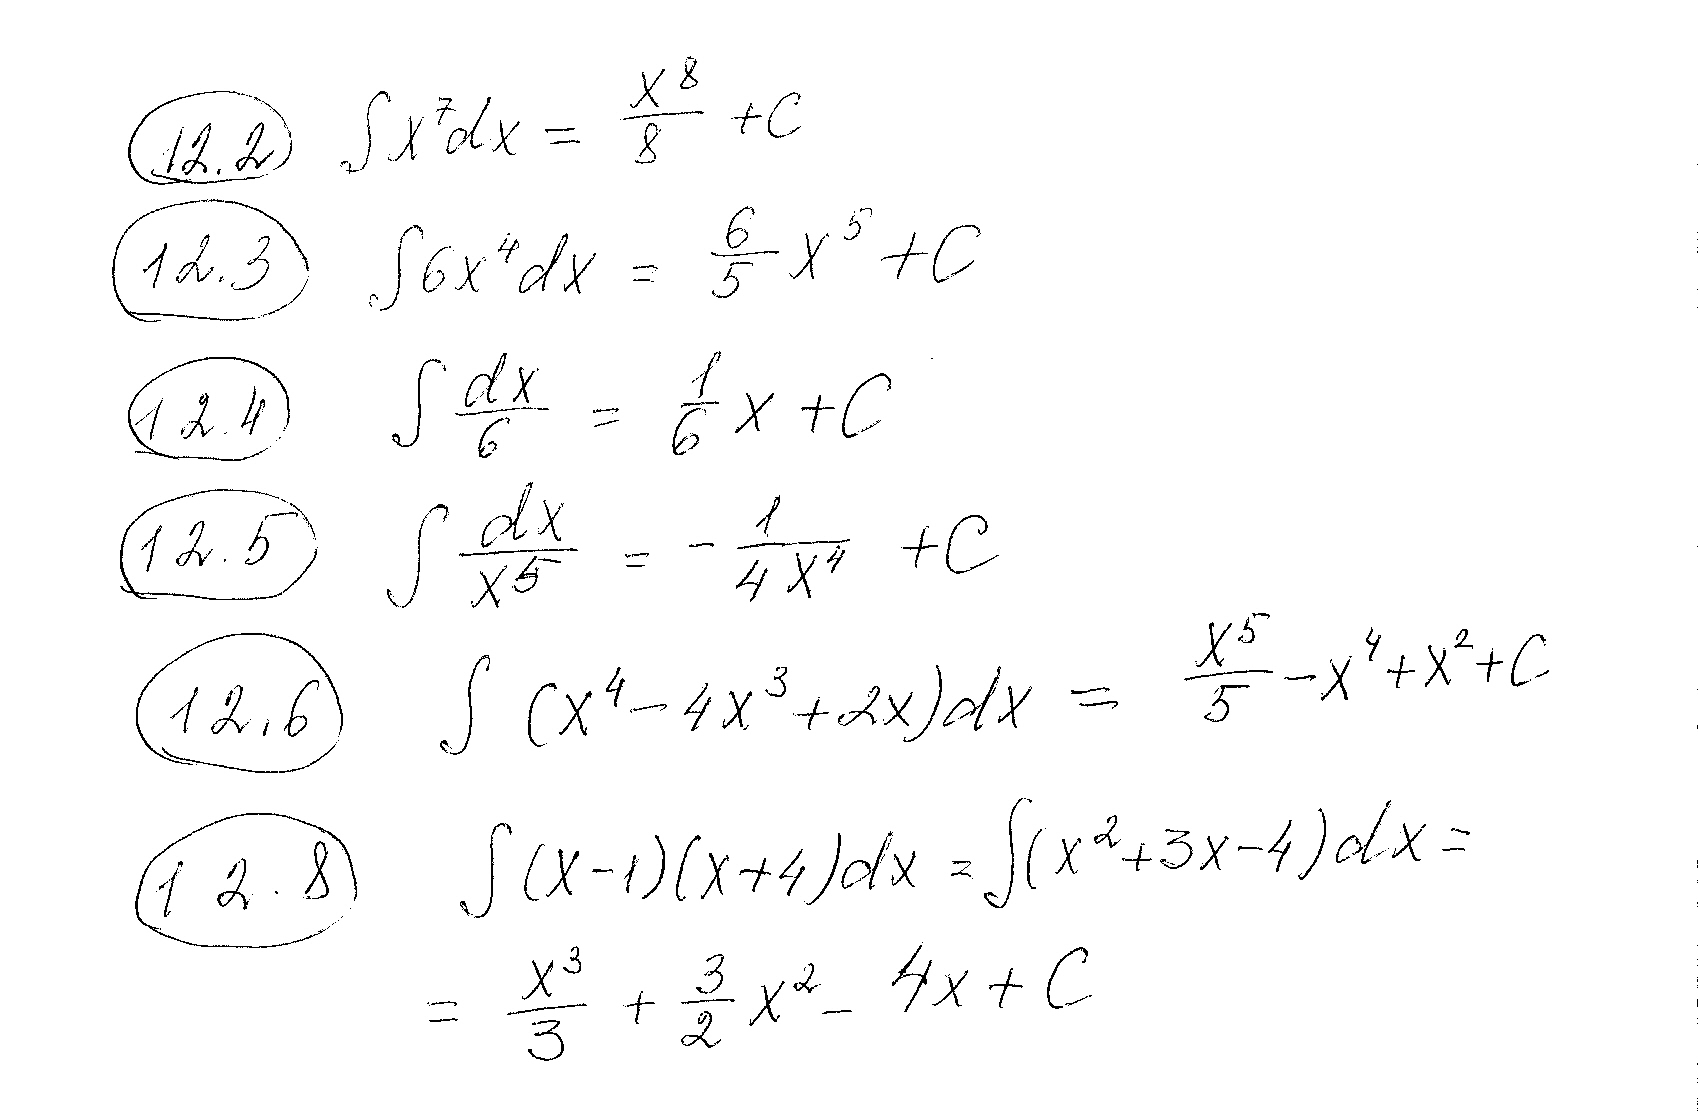 12.2 ∫x⁷dx = x⁸/8 + C
12.3 ∫6x⁴dx = 6/5 x⁵ + C
12.4 ∫dx/6 = 1/6 x + C
12.5 ∫dx/x⁵ = - 1/4x⁴ + C
12.6 ∫(x⁴ - 4x³ + 2x)dx = x⁵/5 - x⁴ + x² + C
12.8 ∫(x-1)(x+4)dx = ∫(x² + 3x - 4)dx =
= x³/3 + 3/2 x² - 4x + C